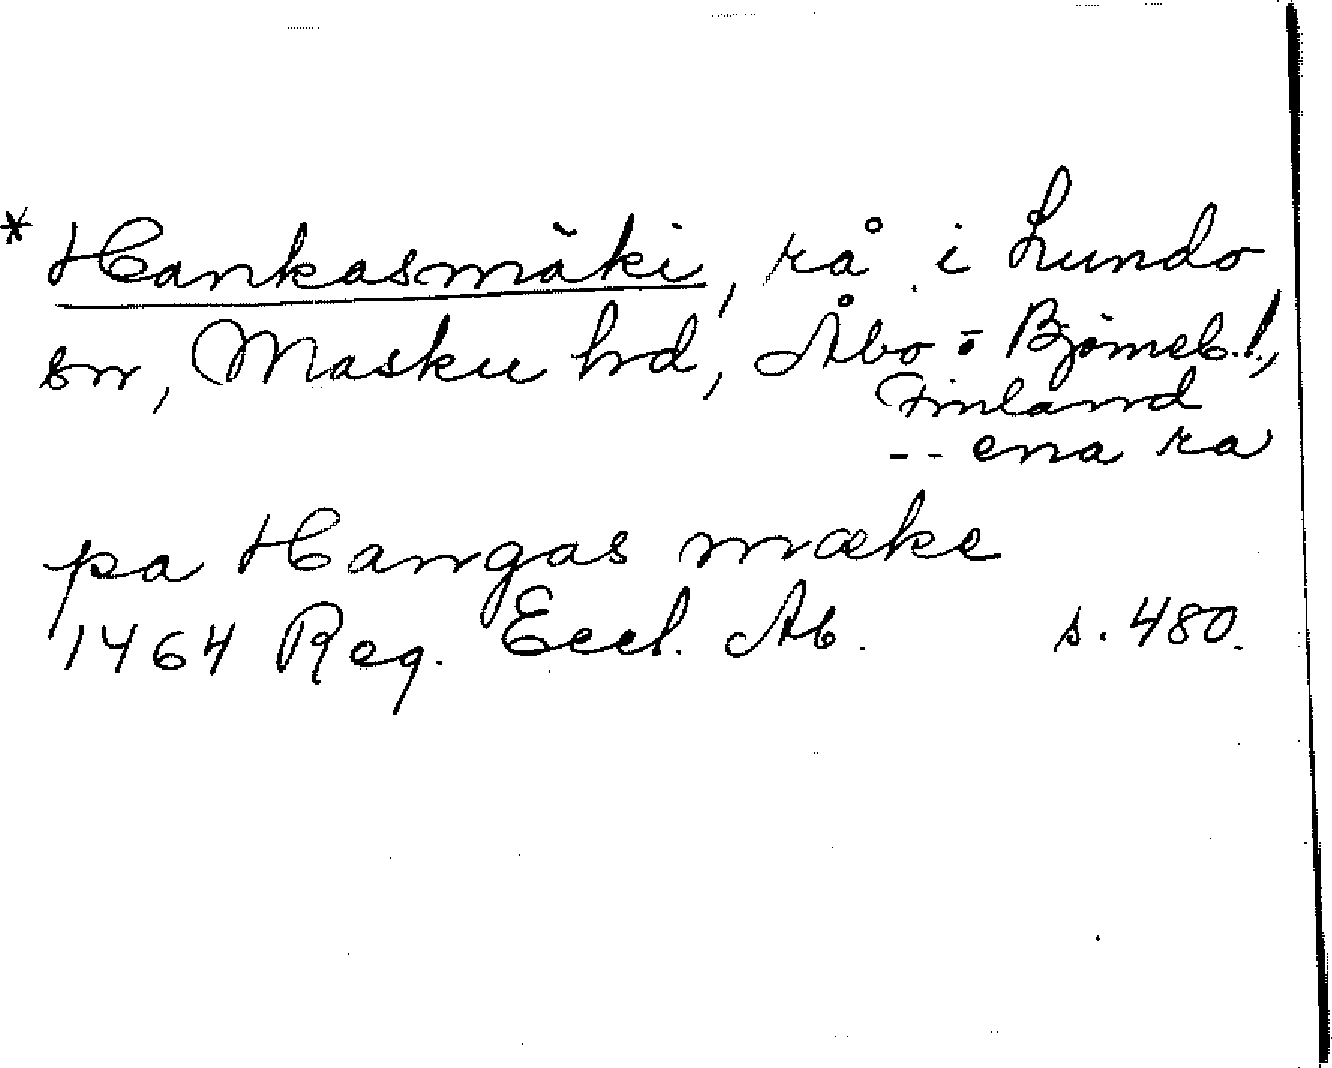 * Hankasmäki, rå i Lundo
sn, Masku hd, Åbo o Björneb. l.,
Finland
-- ena ra
pa Hangas mæke
1464 Reg. Eccl. Ab. s. 480.